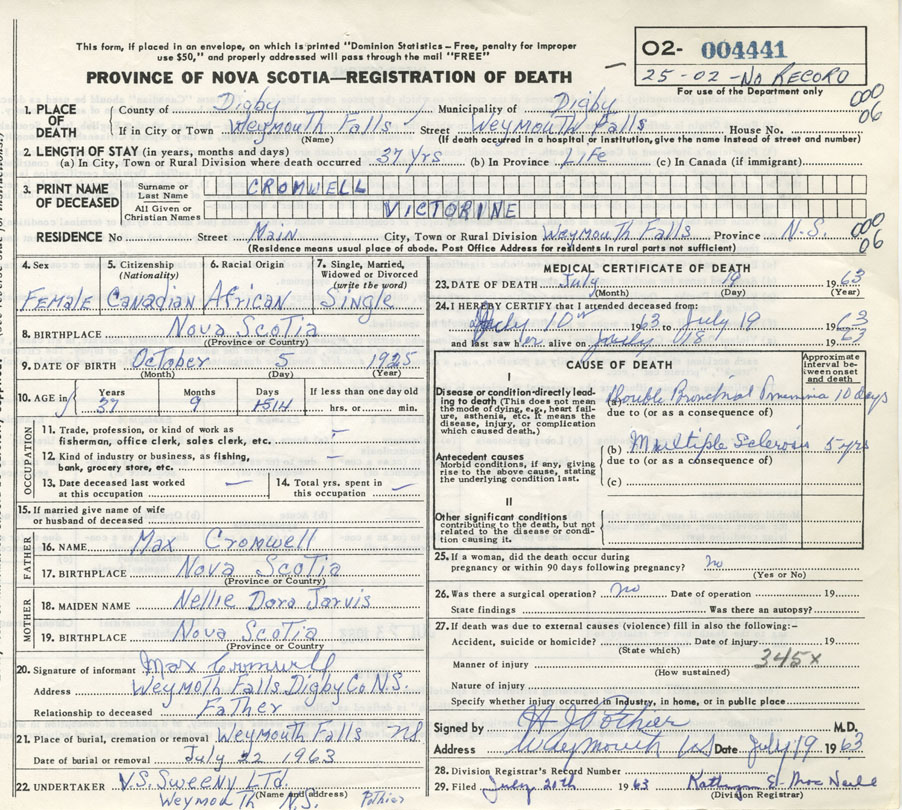 This form, if placed in an envelope, on which is printed "Dominion Statistics – Free, penalty for improper
use $50," and properly addressed will pass through the mail "FREE"
PROVINCE OF NOVA SCOTIA—REGISTRATION OF DEATH
O2- 004441
25-02-No RECORD
For use of the Department only
1. PLACE OF DEATH County of Digby Municipality of Digby 000
If in City or Town Weymouth Falls Street Weymouth Falls House No. 06
(Name) (If death occurred in a hospital or institution, give the name instead of street and number)
2. LENGTH OF STAY (in years, months and days)
(a) In City, Town or Rural Division where death occurred 37 yrs (b) In Province Life (c) In Canada (if immigrant)
3. PRINT NAME OF DECEASED Surname or Last Name CROMWELL
All Given or Christian Names VICTORINE
RESIDENCE No Street Main City, Town or Rural Division Weymouth Falls Province N.S. 000 06
(Residence means usual place of abode. Post Office Address for residents in rural parts not sufficient)
4. Sex Female
5. Citizenship (Nationality) Canadian
6. Racial Origin African
7. Single, Married, Widowed or Divorced (write the word) Single
8. BIRTHPLACE Nova Scotia
(Province or Country)
9. DATE OF BIRTH October 5 1925
(Month) (Day) (Year)
10. AGE in Years 37 Months 9 Days 14 If less than one day old hrs. or min.
OCCUPATION
11. Trade, profession, or kind of work as fisherman, office clerk, sales clerk, etc. –
12. Kind of industry or business, as fishing, bank, grocery store, etc. –
13. Date deceased last worked at this occupation —
14. Total yrs. spent in this occupation –
15. If married give name of wife or husband of deceased
FATHER
16. NAME Max Cromwell
17. BIRTHPLACE Nova Scotia
(Province or Country)
MOTHER
18. MAIDEN NAME Nellie Dora Jarvis
19. BIRTHPLACE Nova Scotia
(Province or Country
20. Signature of informant Max Cromwell
Address Weymoth Falls Digby Co N.S.
Relationship to deceased Father
21. Place of burial, cremation or removal Weymouth Falls NS
Date of burial or removal July 22 1963
22. UNDERTAKER V.S. Sweeny LTd.
(Name and address)
Weymouth N.S. Pothier
MEDICAL CERTIFICATE OF DEATH
23. DATE OF DEATH July 19 1963
(Month) (Day) (Year)
24. I HEREBY CERTIFY that I attended deceased from:
July 10th 1963 to July 19 1963
and last saw her alive on July 18 1963
CAUSE OF DEATH
Approximate interval between onset and death
I
Disease or condition directly leading to death (This does not mean the mode of dying, e.g., heart failure, asthenia, etc. It means the disease, injury, or complication which caused death.)
(a) Double Bronchial Pneumonia 10 days
due to (or as a consequence of)
Antecedent causes
Morbid conditions, if any, giving rise to the above cause, stating the underlying condition last.
(b) Multiple Sclerosis 5 yrs
due to (or as a consequence of)
(c)
II
Other significant conditions
contributing to the death, but not related to the disease or condition causing it.
25. If a woman, did the death occur during pregnancy or within 90 days following pregnancy? no
(Yes or No)
26. Was there a surgical operation? no Date of operation 19
State findings Was there an autopsy?
27. If death was due to external causes (violence) fill in also the following:-
Accident, suicide or homicide? Date of injury 19
(State which)
345x
Manner of injury
(How sustained)
Nature of injury
Specify whether injury occurred in Industry, in home, or in public place
Signed by H J Pothier M.D.
Address Weymouth NS Date July 19 1963
28. Division Registrar's Record Number
29. Filed July 20th 1963 Kathryn E. MacNeill
(Division Registrar)